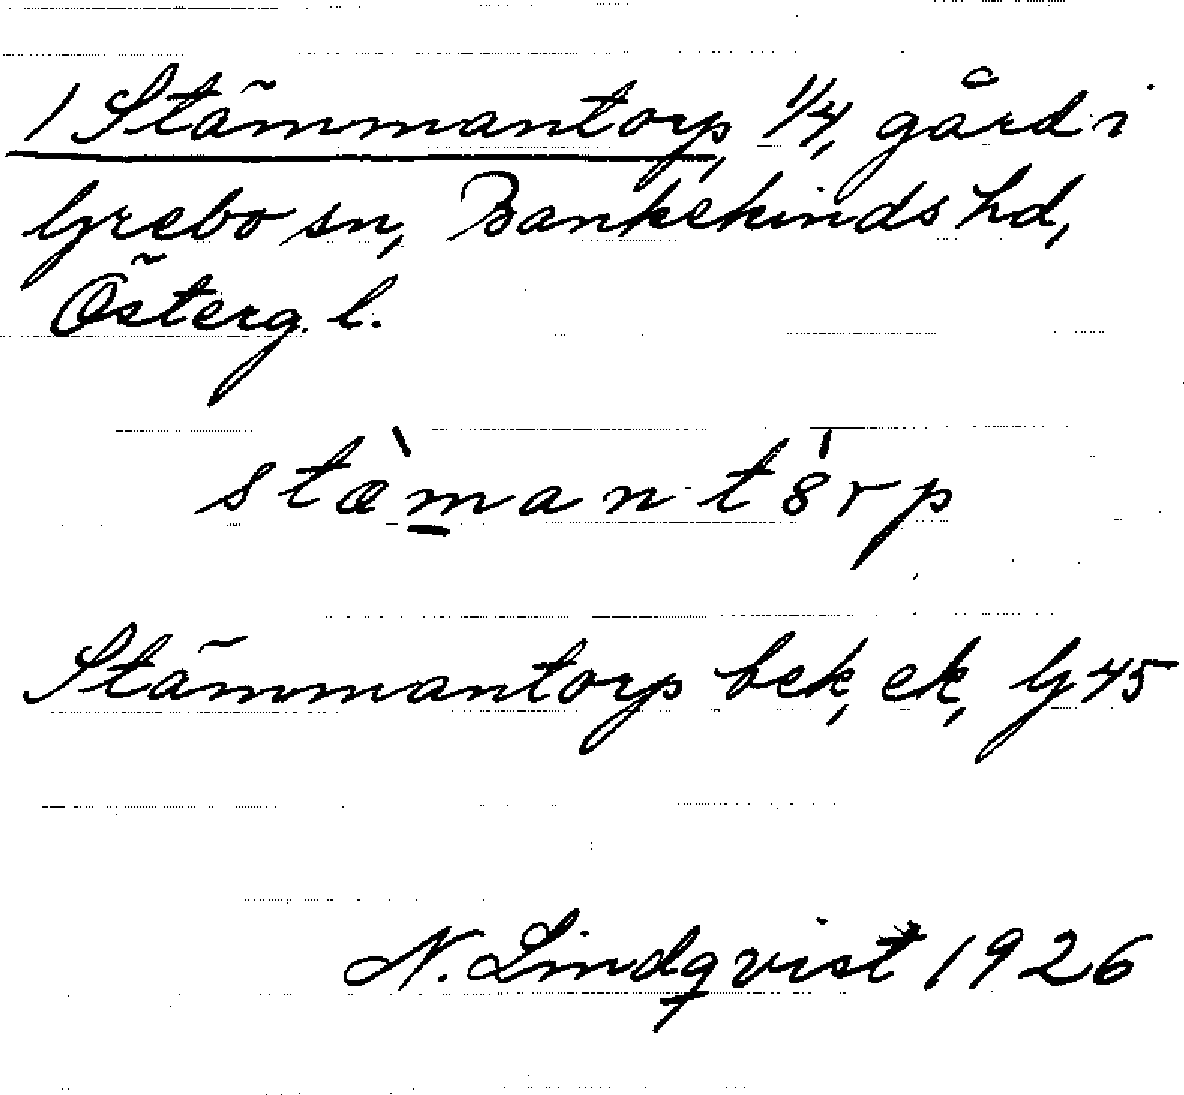 1 Stämmantorp, 1/4, gård i
Grebo sn, Bankekinds hd,
Österg. l.
stæ̀m̲an-tȣ́rp
Stämmantorp bek, ek, G 45
N. Lindqvist 1926